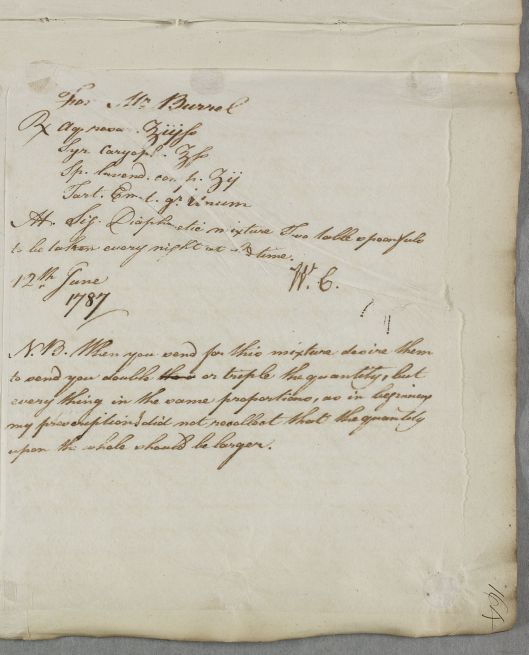 For Mr Burrel
℞ Aq. rosar. ℥iijſs
Syr. Caryoph. ℥ſs
Sp. lavend. comp. ʒij
Tart. Emet. gr. unum
M. Sig. Diaphoretic mixture Two table spoonfuls
to be taken every night at bed time.
12th June W. C.
1787
N.B. When you send for this mixture desire them
to send you double or triple the quantity, but
every thing in the same proportions, as in begining
my prescription I did not recollect that the quantity
upon the whole should be larger.
164